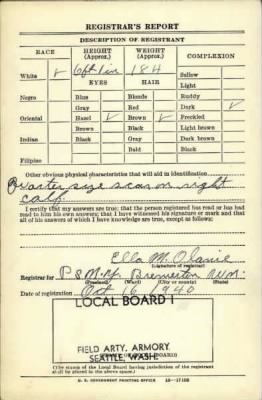 REGISTRAR'S REPORT
DESCRIPTION OF REGISTRANT
RACE HEIGHT (Approx.) WEIGHT (Approx.) COMPLEXION
White ✓ 6 ft 1 in 184 Sallow
EYES HAIR Light
Negro Blue Blonde Ruddy
Gray Red Dark ✓
Oriental Hazel ✓ Brown ✓ Freckled
Brown Black Light brown
Indian Black Gray Dark brown
Bald Black
Filipino
Other obvious physical characteristics that will aid in identification
Quarter size scar on right
calf.
I certify that my answers are true; that the person registered has read or has had
read to him his own answers; that I have witnessed his signature or mark and that
all of his answers of which I have knowledge are true, except as follows:
Ella M.
(Signature of registrar)
Registrar for P.S.N.Y. Bremerton Wn.
(Precinct) (Ward) (City or county) (State)
Date of registration Oct 16 1940
LOCAL BOARD 1
FIELD ARTY. ARMORY
SEATTLE, WASH.
(The stamp of the Local Board having jurisdiction of the registrant
shall be placed in the above space.)
U. S. GOVERNMENT PRINTING OFFICE 16—17105